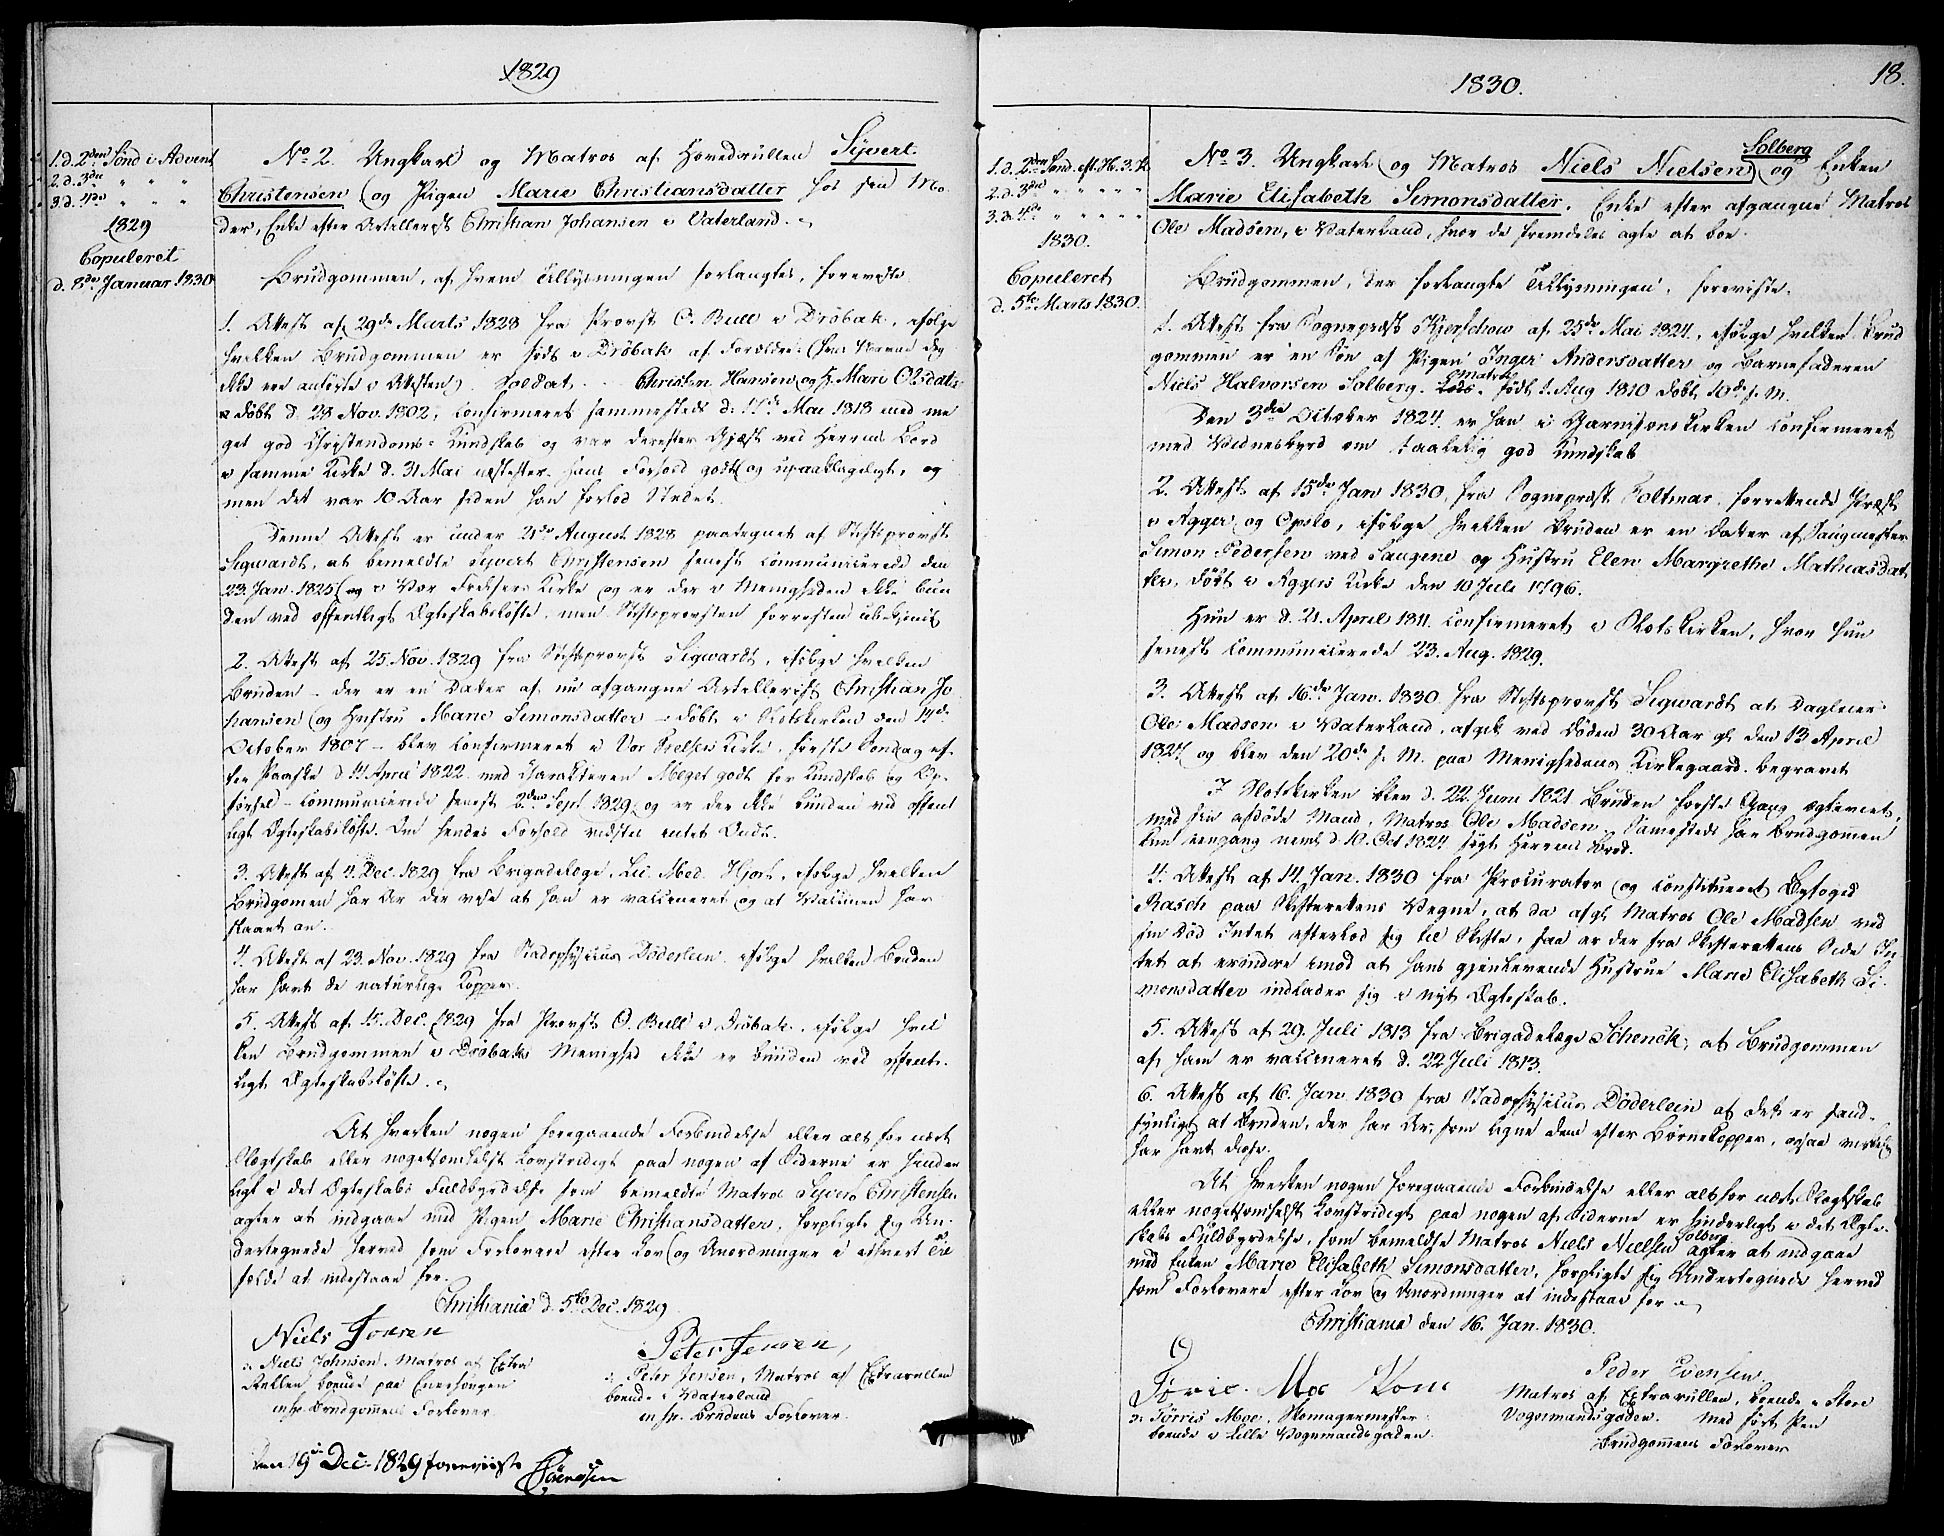 1829
1.d. 2den Sønd i Advent
2.d. 3die " " "
3.d. 4de " " "
1829
Copuleret
d. 8de Januar 1830
No 2. Ungkarl og Matros af Hovedrullen Syvert
Christensen og Pigen Marie Christiansdatter hos sin Mo-
der, Enke efter Artillerist Christian Johansen i Vaterland.
Brudgommen, af hvem Tillysningen forlangtes, foreviste
1. Attest af 29de Marts 1828 fra Provst O. Bull i Drøbak, ifølge
hvilken Brudgommen er født i Drøbak af Forældre (hvis Navne dog
ikke ere anførte i Attesten). Soldat Christen Hansen og H. Marie Olsdatr
døbt d. 28 Nov. 1802, confirmeret sammesteds d. 17de Mai 1818 med me
get god Christendoms-Kundskab og var derefter Gjæst ved Herrens Bord
i samme Kirke d. 31 Mai næstefter. Hans Forhold godt og upaaklageligt, og
men det var 10 Aar siden han forlod Stedet.
Denne Attest er under 21de August 1828 paategnet af Stiftsprovst
Sigwardt, at bemeldte Syvert Christensen senest communicerede den
23 Jan. 1825 i Vor Frelsers Kirke og er der i Menigheden ikke bun
den ved offentligt Ægteskabsløfte, men Stiftsprovsten forresten ubekjendt
2. Attest af 25. Nov. 1829 fra Stiftsprovst Sigwardt, ifølge hvilken
Bruden - der er en Datter af nu afgangne Artillerist Christian Jo
hansen og Hustru Marie Simonsdatter - døbt i Slotskirken den 14de
October 1807 - blev confirmeret i Vor Frelsers Kirke, første Søndag ef-
ter Paaske d 14 April 1822 med Charakteren Meget godt for Kundskab og Op-
førsel - communicerede senest 2den Sept 1829, og er der ikke bunden ved offent
ligt Ægteskabsløfte. Om hendes Forhold vidstes intet Ondt.
3. Attest af 4. Dec. 1829 fra Brigadelæge, Lic. Med. Hjort, ifølge hvilken
Brudgomen har Ar der vise at han er vaccineret og at Vaccinen har
slaaet an.
4. Attest af 23. Nov. 1829 fra Stadsphysicus Döderlein, ifølge hvilken Bruden
har havt de naturlige Kopper.
5. Attest af 15. Dec. 1829 fra Provst O. Bull i Drøbak, ifølge hvil
ken Brudgommen i Drøbaks Menighed ikke er bunden ved offent-
ligt Ægteskabsløfte.
At hverken nogen foregaaende Forbindelse eller alt for nært
Slægtskab eller nogetsomhelst Lovstridigt paa nogen af Siderne er hinder
ligt i det Ægteskabs Fuldbyrdelse som bemeldte Matros Syvert Christensen
agter at indgaae med Pigen Marie Christiansdatter, forpligte sig Un-
dertegnede herved som Forlovere efter Lov og Anordninger i ethvert Til
fælde at indestaae for.
Christiania d. 5te Dec. 1829
Niels Jonsen
Niels Johnsen, Matros af Extra
Rullen boende paa Enerhougen
Brudgomens Forlover
Peter Jensen,
Peter Jensen, Matros af Extrarullen
boende i Vaterland
Brudens Forlover.
Den 19de Dec. 1829 foreviist Sörensen
1830.
18.
1.d. 2den Sønd. e. H. 3. K.
2.d. 3die " " " "
3.d. 4de " " " "
1830.
Copuleret
d. 5te Marts 1830.
No 3. Ungkarl og Matros Niels Nielsen Solberg og Enken
Marie Elisabeth Simonsdatter, Enke efter afgangne Matros
Ole Madsen, i Vaterland, hvor de fremdeles agte at boe.
Brudgommen, der forlangte Tillysningen, foreviste.
1. Attest fra Sognepræst Kjerschow af 25de Mai 1824, ifølge hvilken Brud
gommen er en Søn af Pigen Inger Andersdatter og Barnefaderen
Niels Halvorsen Solberg. Matros født 1. Aug 1810 døbt 10de s. M.
Den 3die October 1824 er han i Garnisonskirken confirmeret
med Vidnesbyrd om taalelig god Kundskab
2. Attest af 15de Jan 1830, fra Sognepræst Foltmar, forrettende Præst
i Agger og Opslo, ifølge hvilken Bruden er en Datter af Saugmester
Simon Pedersen ved Saugene og Hustru Elen Margrethe Mathiasdat
ter, døbt i Aggers Kirke den 10 Juli 1796.
Hun er d. 21. April 1811 confirmeret i Slotskirken, hvor hun
senest communicerede 23. Aug. 1829.
3. Attest af 16de Jan. 1830 fra Stiftsprovst Sigwardt at Dagleier
Ole Madsen i Vaterland, afgik ved Døden 30 Aar gl. den 13 April
1827 og blev den 20de s. M. paa Menighedens Kirkegaard begravet
I Slotskirken blev d. 22 Juni 1821 Bruden første Gang ægteviet,
med sin afdøde Mand, Matros Ole Madsen. Sammesteds har Brudgomen
kun eengang neml. d. 10. Oct 1824 søgt Herrens Bord.
4. Attest af 14. Jan. 1830 fra Procurator og constitueret Byfoged
Rasch paa Skifterettens Vegne, at da afgl Matros Ole Madsen ved
sin Død Intet efterlod sig til Skifte, saa er der fra Skifterettens Side In
tet at erindre imod at hans gjenlevende Hustrue Marie Elisabeth Si-
monsdatter indlader sig i nyt Ægteskab.
5. Attest af 29. Juli 1813 fra Brigadelæge Schenck, at Brudgommen
af ham er vaccineret d. 22 Juli 1813.
6. Attest af 16. Jan. 1830 fra Stadsphysicus Döderlein at det er sand-
synligt at Bruden, der har Ar, som ligne dem efter Børnekopper, ogsaa virkelig
har havt disse.
At hverken nogen foregaaende Forbindelse eller altfor nært Slægtskab
eller nogetsomhelst Lovstridigt paa nogen af Siderne er hinderligt i det Ægte-
skabs Fuldbyrdelse, som bemeldte Matros Niels Nielsen Solberg agter at indgaae
med Enken Marie Elisabeth Simonsdatter, forpligte sig Undertegnede herved
som Forlovere efter Lov og Anordninger at indestaae for.
Christiania den 16. Jan. 1830.
Tørris Moe, Skomagermester
boende i Lille Vognmandsgaden.
Peder Evensen
Matros af Extrarullen, boende i Store
Vognmandsgaden. med ført Pen
Brudgommens Forlover